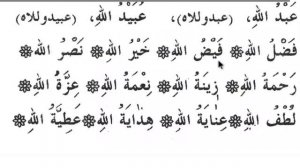 عَبْدُ اللهِ، (عبدوللاه)، عُبَيْدُ اللهِ، (عبيدوللاه)
فَضْلُ اللهِ ❁ فَيْضُ اللهِ ❁ خَيْرُ اللهِ ❁ نَصْرُ اللهِ
رَحْمَةُ اللهِ ❁ زِينَةُ اللهِ ❁ نِعْمَةُ اللهِ ❁ عِزَّةُ اللهِ
لُطْفُ اللهِ ❁ عِنَايَةُ اللهِ ❁ هِدَايَةُ اللهِ ❁ عَطِيَّةُ اللهِ